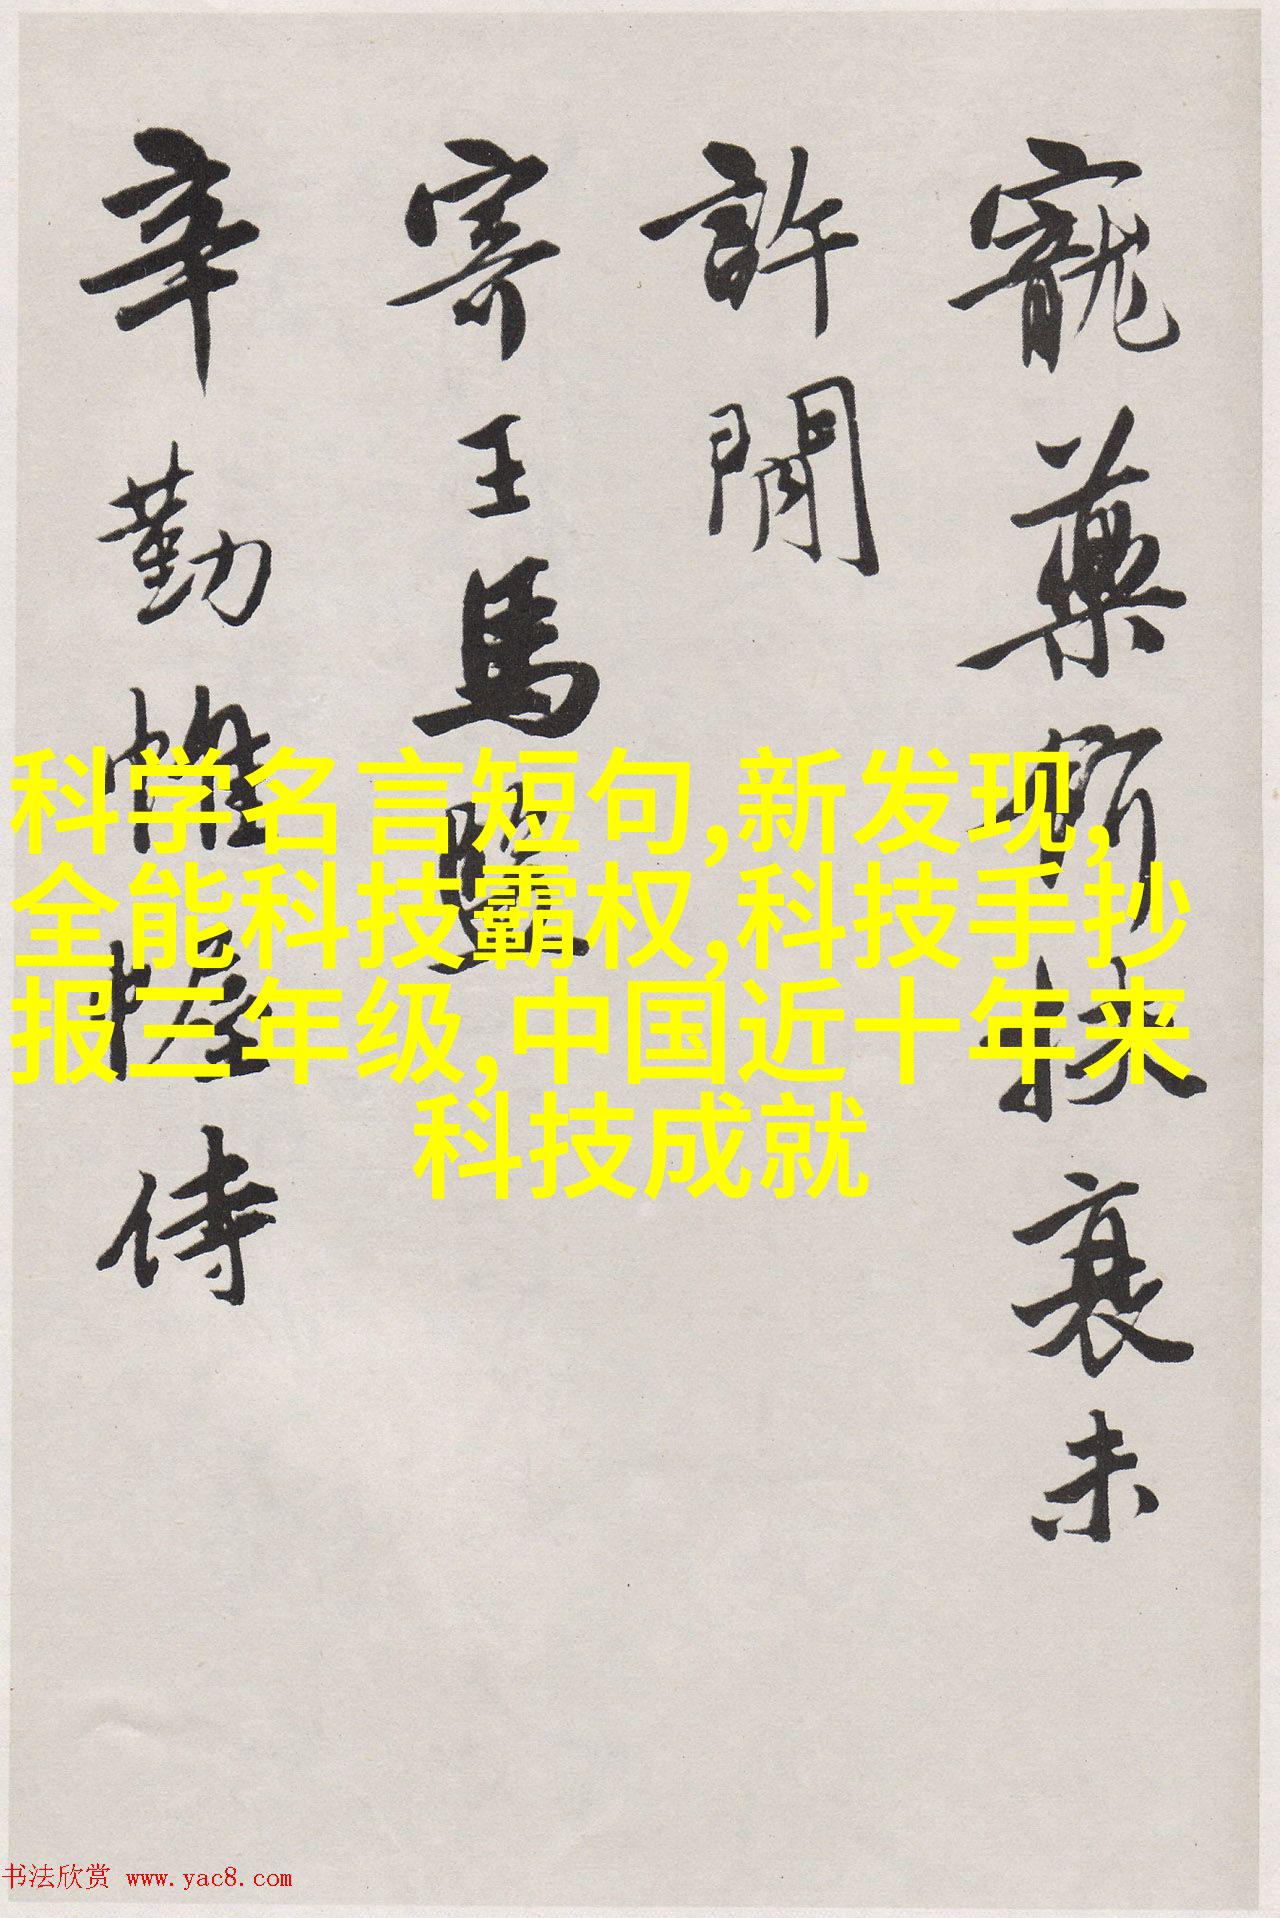 寵藥扶衰未
許閒
寄王馬
辛勤帷幄侍
科学名言短句,新发现,
全能科技霸权,科技手抄
报三年级,中国近十年来
科技成就
书法欣赏 www.yac8.com